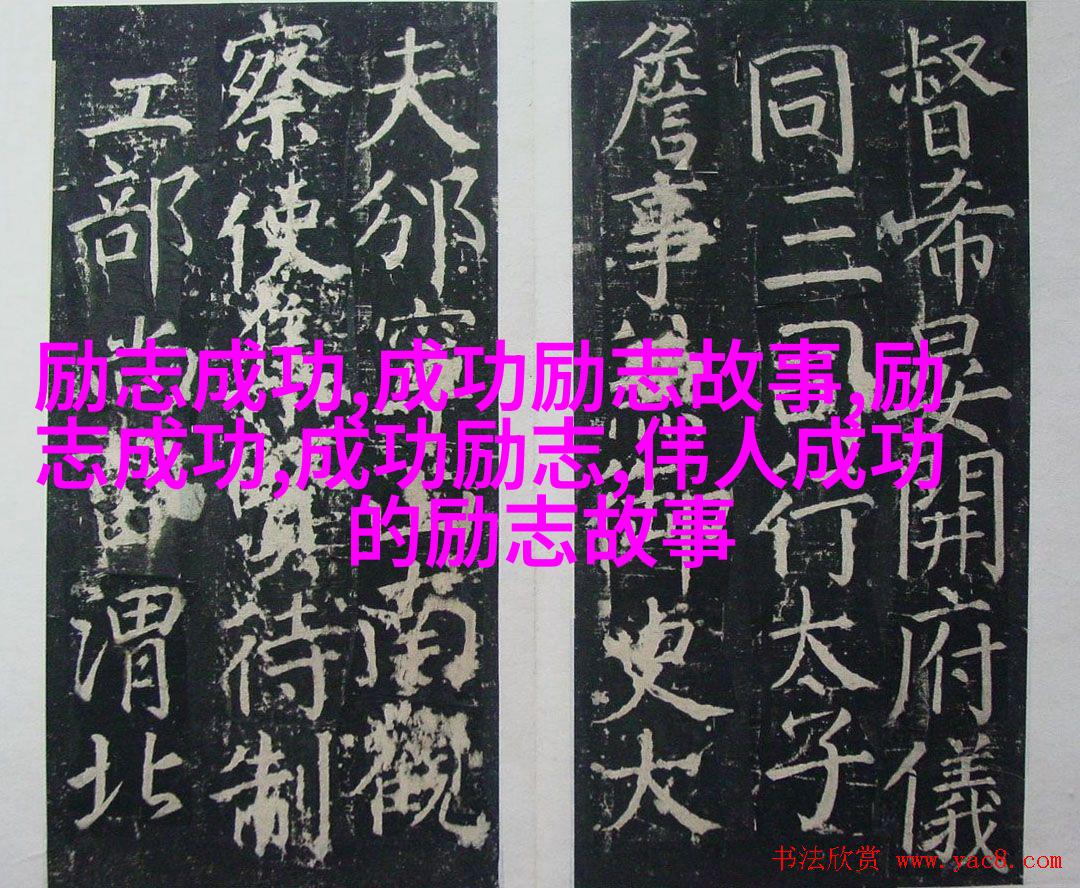 励志成功,成功励志故事,励
志成功,成功励志,伟人成功
的励志故事
督希晏開府儀
同三司行太子
詹事史大
夫邠寧南觀
察使待制
工部尚書渭北
书法欣赏 www.yac8.com